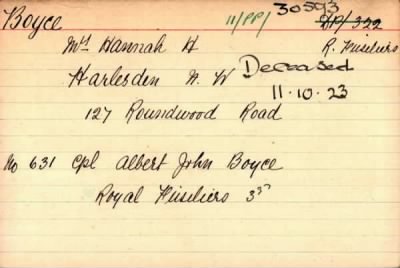 Boyce 11/PP/ 30593 DP/322
Mrs Hannah H R. Fusiliers
Harlesden N. W Deceased
11.10.23
127 Roundwood Road
No 631 Cpl Albert John Boyce
Royal Fusiliers 3rd